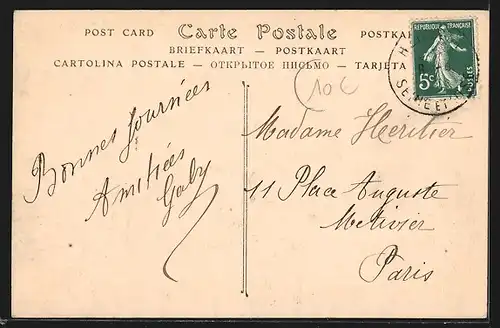 POST CARD — Carte Postale — POSTKA
BRIEFKAART — POSTKAART
CARTOLINA POSTALE — ОТКРЫТОЕ ПИСЬМО — TARJETA
10 €
RÉPUBLIQUE FRANÇAISE
5c
POSTES
SEINE ET
Bonnes Journées
Amitiées
Gaby
Madame Heritier
11 Place Auguste
Metivier
Paris